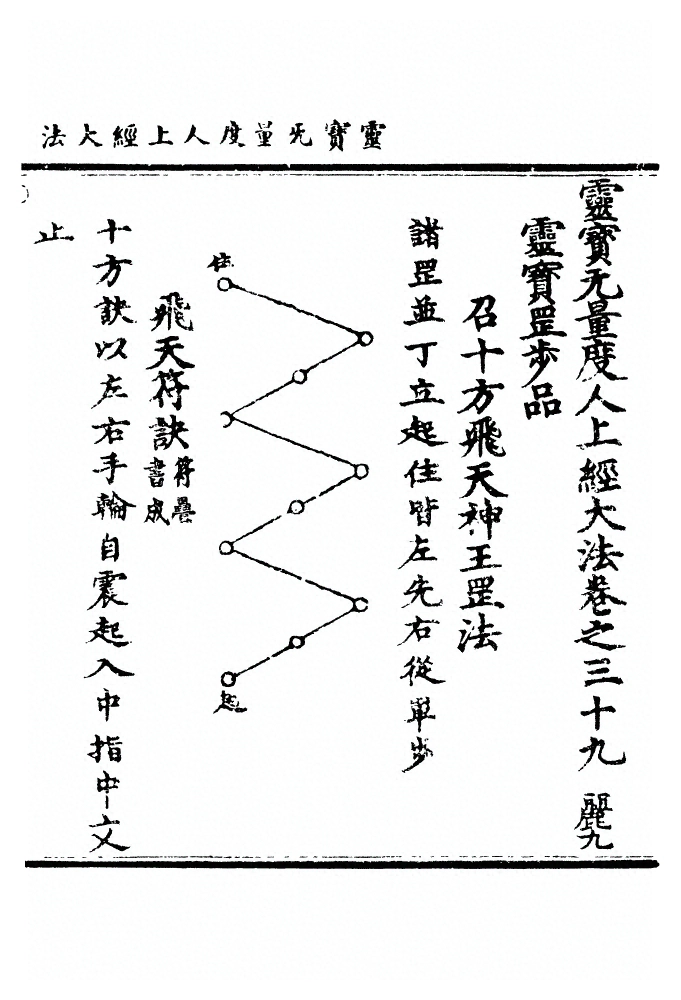 靈寶无量度人上經大法
靈寶无量度人上經大法卷之三十九 麗九
靈寶罡步品
召十方飛天神王罡法
諸罡並丁立起住皆左先右從單步
住
起
飛天符訣 符疊書成
十方訣以左右手輪自震起入中指中文
止